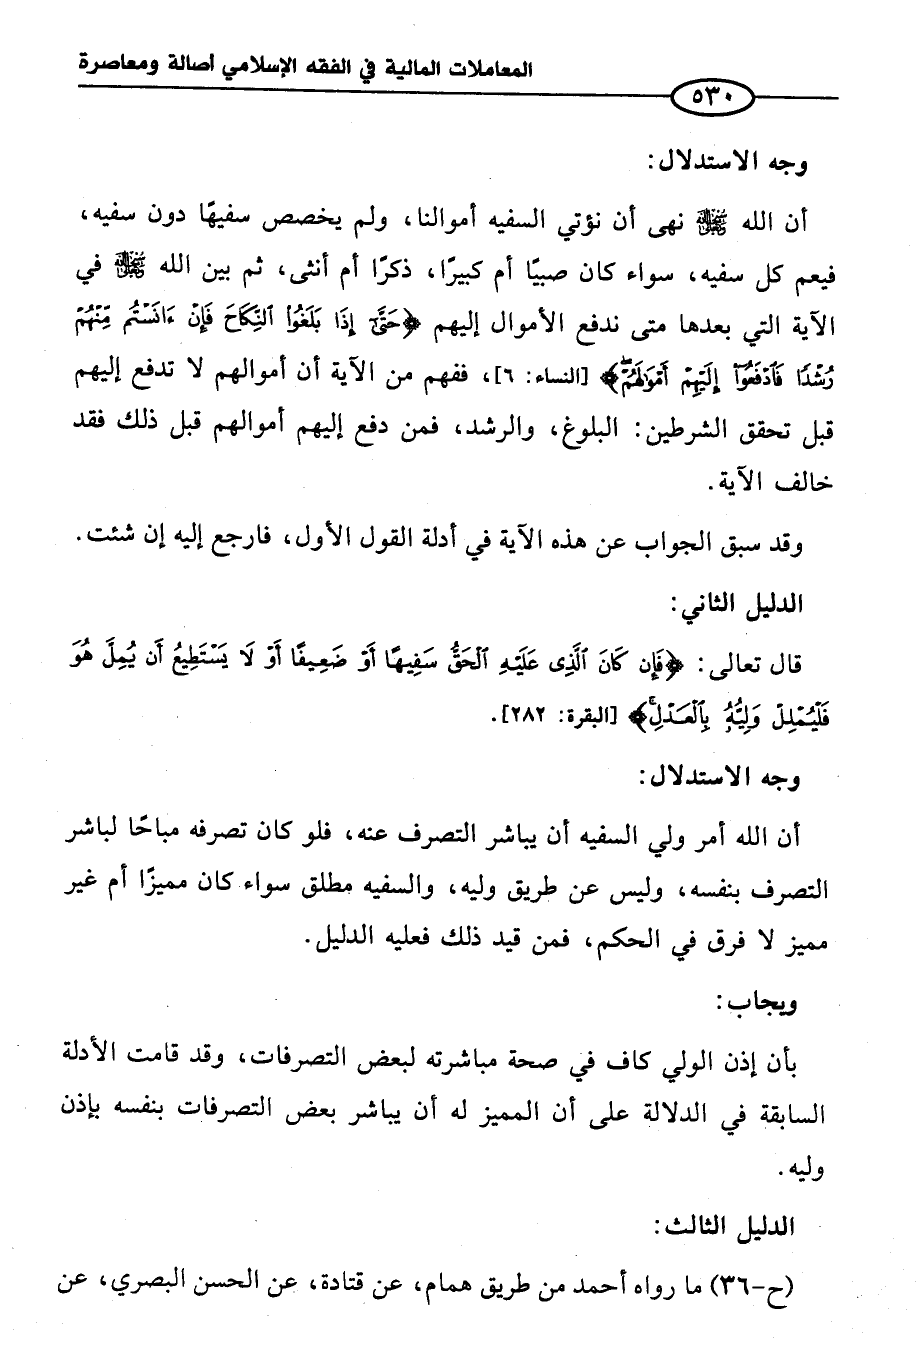 المعاملات المالية في الفقه الإسلامي أصالة ومعاصرة
٥٣٠
وجه الاستدلال:
أن الله ﷻ نهى أن نؤتي السفيه أموالنا، ولم يخصص سفيهًا دون سفيه،
فيعم كل سفيه، سواء كان صبيًا أم كبيرًا، ذكرًا أم أنثى، ثم بين الله ﷻ في
الآية التي بعدها متى ندفع الأموال إليهم ﴿حَتَّىٰٓ إِذَا بَلَغُوا۟ ٱلنِّكَاحَ فَإِنْ ءَانَسْتُم مِّنْهُمْ
رُشْدًا فَٱدْفَعُوٓا۟ إِلَيْهِمْ أَمْوَٰلَهُمْ ۖ﴾ [النساء: ٦]، ففهم من الآية أن أموالهم لا تدفع إليهم
قبل تحقق الشرطين: البلوغ، والرشد، فمن دفع إليهم أموالهم قبل ذلك فقد
خالف الآية.
وقد سبق الجواب عن هذه الآية في أدلة القول الأول، فارجع إليه إن شئت.
الدليل الثاني:
قال تعالى: ﴿فَإِن كَانَ ٱلَّذِى عَلَيْهِ ٱلْحَقُّ سَفِيهًا أَوْ ضَعِيفًا أَوْ لَا يَسْتَطِيعُ أَن يُمِلَّ هُوَ
فَلْيُمْلِلْ وَلِيُّهُۥ بِٱلْعَدْلِ ۚ﴾ [البقرة: ٢٨٢].
وجه الاستدلال:
أن الله أمر ولي السفيه أن يباشر التصرف عنه، فلو كان تصرفه مباحًا لباشر
التصرف بنفسه، وليس عن طريق وليه، والسفيه مطلق سواء كان مميزًا أم غير
مميز لا فرق في الحكم، فمن قيد ذلك فعليه الدليل.
ويجاب:
بأن إذن الولي كاف في صحة مباشرته لبعض التصرفات، وقد قامت الأدلة
السابقة في الدلالة على أن المميز له أن يباشر بعض التصرفات بنفسه بإذن
وليه.
الدليل الثالث:
(ح-٣٦) ما رواه أحمد من طريق همام، عن قتادة، عن الحسن البصري، عن